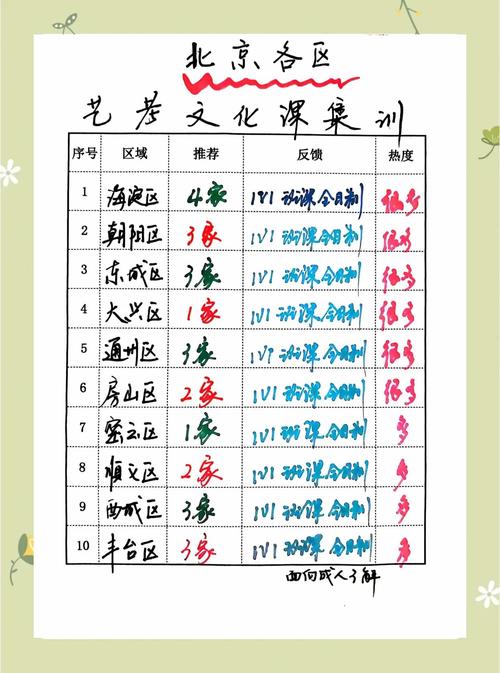 北京各区
艺考文化课集训
序号 区域 推荐 反馈 热度
1 海淀区 4家 1V1 班课 全日制 很多
2 朝阳区 3家 1V1 班课 全日制 很多
3 东城区 3家 1V1 班课 全日制 很多
4 大兴区 1家 1V1 班课 全日制 很多
5 通州区 3家 1V1 班课 全日制 很多
6 房山区 2家 1V1 班课 全日制 很多
7 密云区 1家 1V1 班课 全日制 多
8 顺义区 2家 1V1 班课 全日制 多
9 西城区 3家 1V1 班课 全日制 多
10 丰台区 3家 1V1 班课 全日制 多
面向成人了解